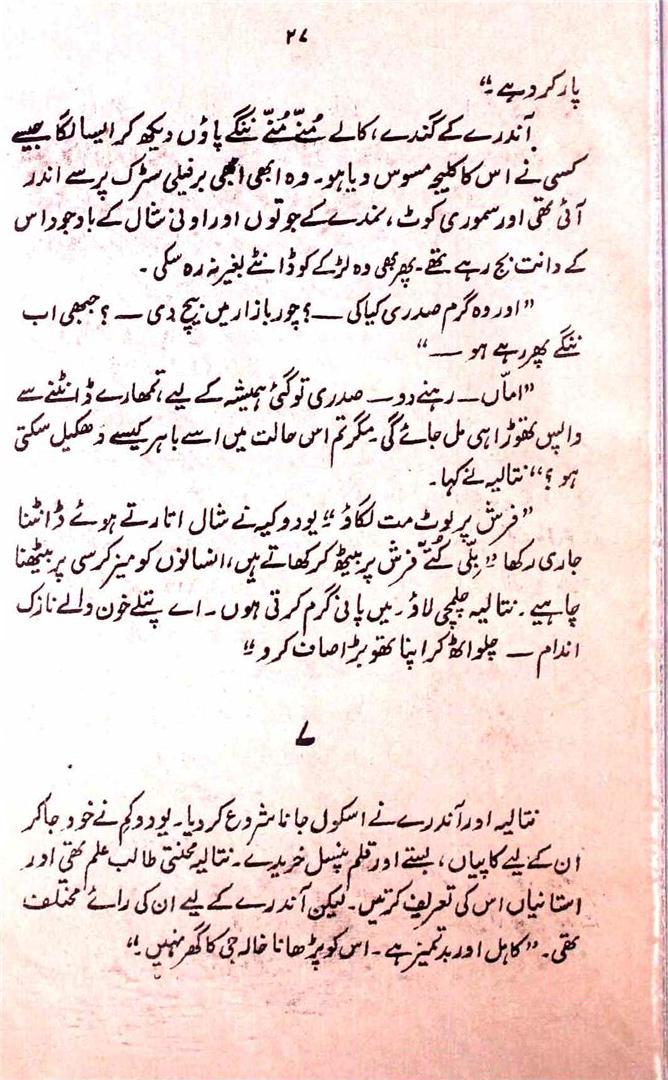 ۲۷
پار کر دہے۔“
آندرے کے گندے، کالے مُنّے مُنّے ننگے پاؤں دیکھ کر ایسا لگا جیسے
کسی نے اس کا کلیجہ مسوس دیا ہو۔ وہ ابھی ابھی برفیلی سڑک پر سے اندر
آئی تھی اور سموری کوٹ، نمدے کے جوتوں اور اونی شال کے باوجود اس
کے دانت بج رہے تھے۔ پھر بھی وہ لڑکے کو ڈانٹے بغیر نہ رہ سکی۔
”اور وہ گرم صدری کیا کی —؟ چور بازار میں بیچ دی —؟ جبھی اب
ننگے پھر رہے ہو —“
”امّاں — رہنے دو — صدری تو گئی ہمیشہ کے لیے، تمھارے ڈانٹنے سے
واپس تھوڑا ہی مل جائے گی۔ مگر تم اس حالت میں اسے باہر کیسے دھکیل سکتی
ہو؟“ نتالیہ نے کہا۔
”فرش پر لوٹ مت لگاؤ“ یودوکیہ نے شال اتارتے ہوئے ڈانٹنا
جاری رکھا ”بلّی کُتّے فرش پر بیٹھ کر کھاتے ہیں، انسانوں کو میز کرسی پر بیٹھنا
چاہیے۔ نتالیہ چلمچی لاؤ۔ میں پانی گرم کرتی ہوں۔ اے پتلے خون والے نازک
اندام — چلو اٹھ کر اپنا تھوبڑا صاف کرو“
۷
نتالیہ اور آندرے نے اسکول جانا شروع کر دیا۔ یودوکم نے خود جا کر
ان کے لیے کاپیاں، بستے اور قلم پنسل خریدے۔ نتالیہ محنتی طالب علم تھی اور
استانیاں اس کی تعریف کرتیں۔ لیکن آندرے کے لیے ان کی رائے مختلف
تھی۔ ”کاہل اور بدتمیز ہے۔ اس کو پڑھانا خالہ جی کا گھر نہیں۔“